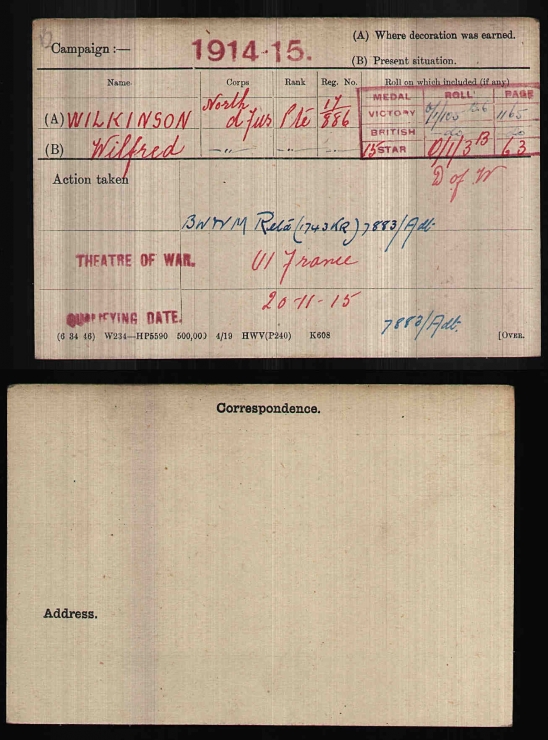 Campaign :—
1914-15.
(A) Where decoration was earned.
(B) Present situation.
Name Corps Rank Reg. No. Roll on which included (if any)
MEDAL ROLL PAGE
(A) WILKINSON North'd Fus Pte 17/886
VICTORY 1165
BRITISH do do
(B) Wilfred —"— —"—
15 STAR O/1/3 B 63
Action taken
D of W
BWVM Retd (1743KR) 7883/Adt.
THEATRE OF WAR. (1) France
QUALIFYING DATE. 20-11-15
7883/Adt.
(6 34 46) W234—HP5590 500,000 4/19 HWV(P240) K608 [OVER.
Correspondence.
Address.